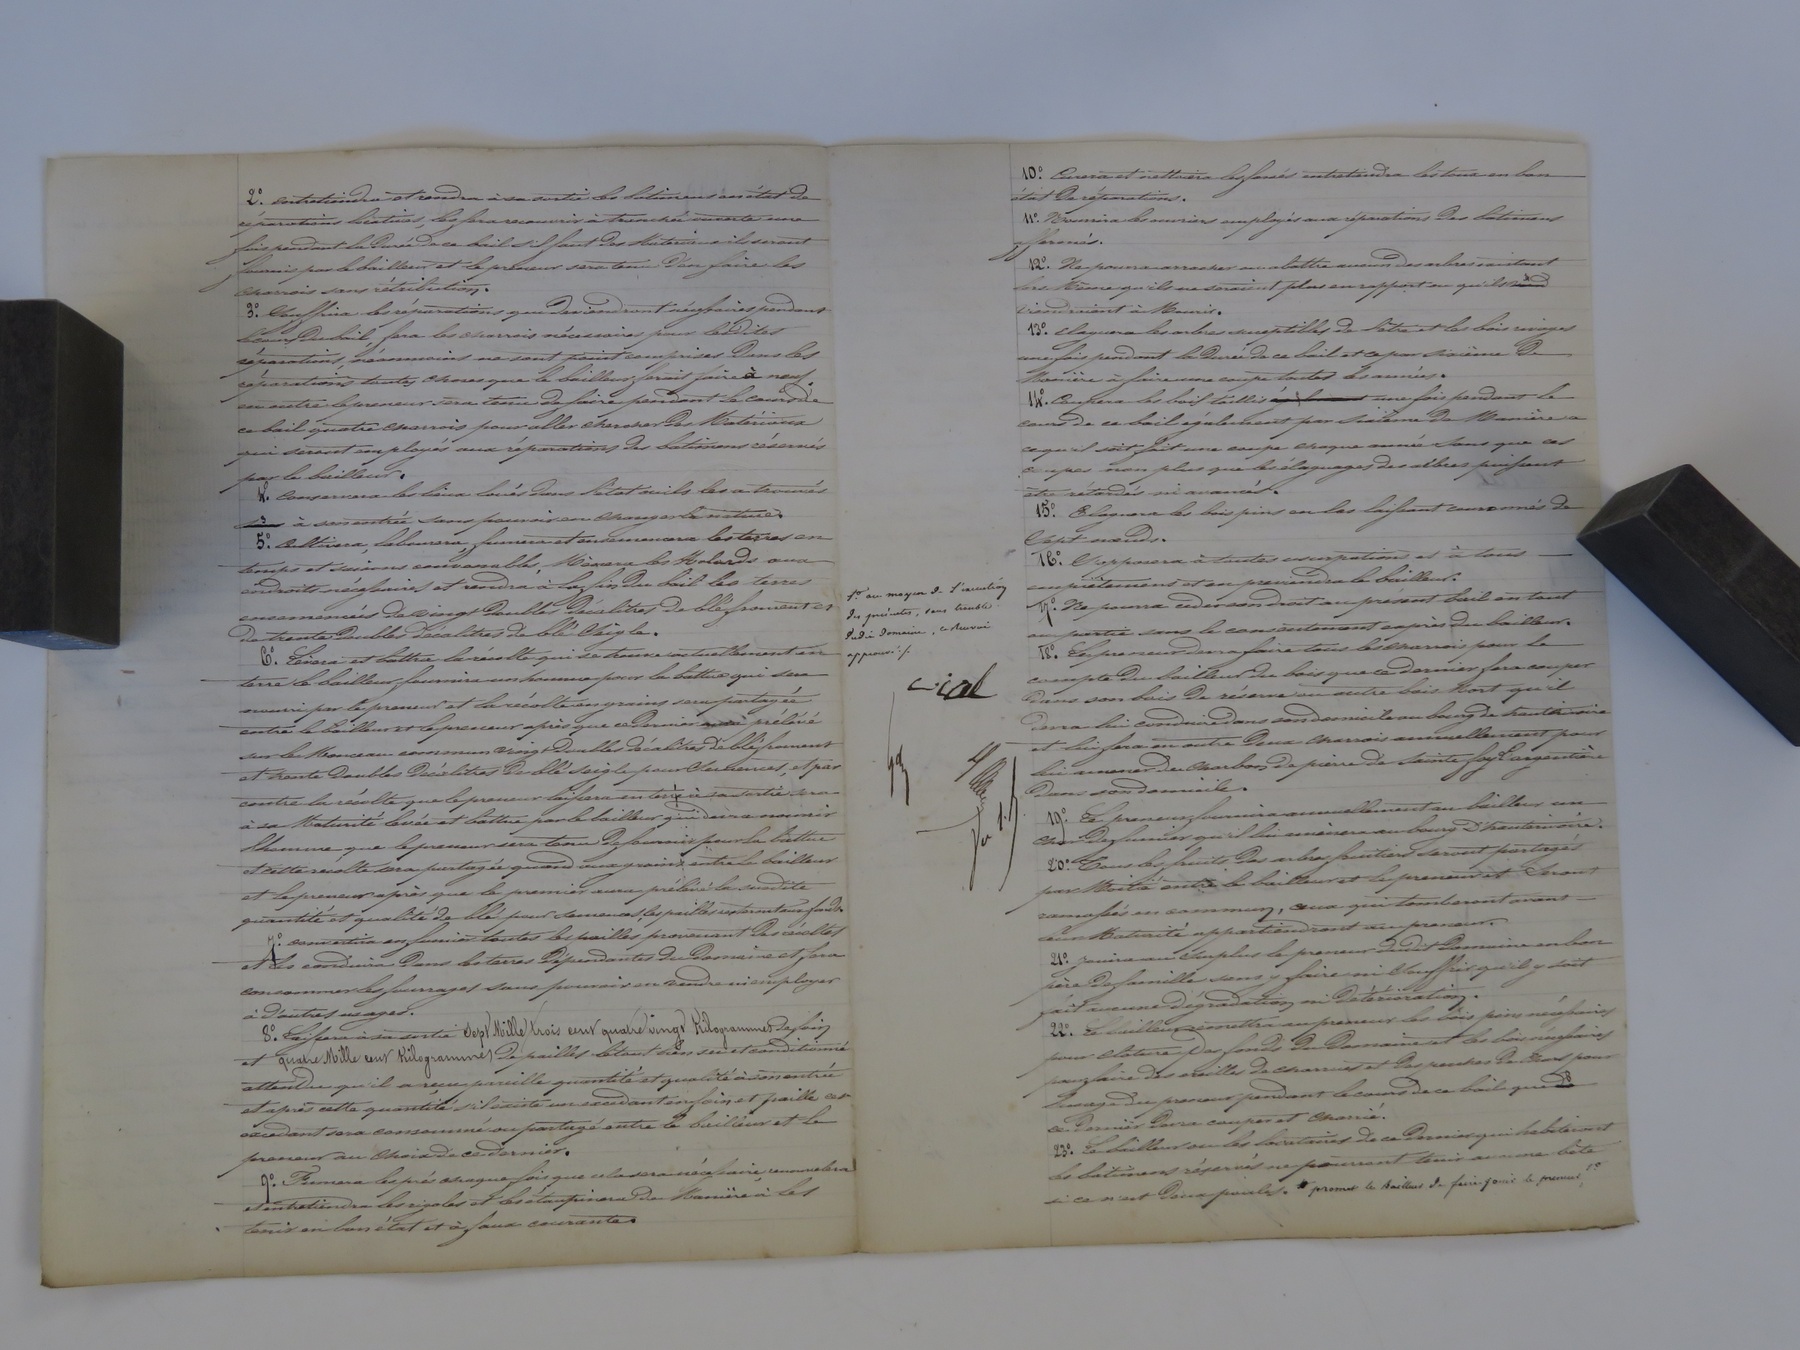 2.° entretiendra et rendra à sa sortie les bâtimens en état de
réparations locatives, les fera recouvrir à tranchée ouverte une
fois pendant la durée de ce bail s'il faut des Matériaux ils seront
fournis par le bailleur et le preneur sera tenu d'en faire les
charrois sans rétribution.
3.° Souffrira les réparations qui deviendront nécessaires pendant
le cours du bail, fera les charrois nécessaires pour les dites
réparations, néanmoins ne sont point comprises dans les
réparations toutes choses que le bailleur ferait faire à neuf,
en outre le preneur sera tenu de faire pendant le cours de
ce bail quatre charrois pour aller chercher des Matériaux
qui seront employés aux réparations des bâtimens réservés
par le bailleur.
4.° Conservera les lieux loués dans l'état où il les a trouvés
à son entrée sans pouvoir en changer la nature.
5.° Cultivera, labourera, fumera et ensemencera les terres en
temps et saisons convenables, Mènera les Molards aux
endroits nécessaires et rendra à la fin du bail les terres
ensemencées de vingt doubles décalitres de blé froment et
de trente doubles décalitres de blé Seigle.
6.° Lèvera et battra la récolte qui se trouve actuellement en
terre le bailleur fournira un homme pour la battre qui sera
nourri par le preneur et la récolte en grains sera partagée
entre le bailleur et le preneur après que ce dernier aura prélevé
sur le Monceau commun vingt doubles décalitres de blé froment
et trente doubles décalitres de blé seigle pour Semences, et par
contre la récolte que le preneur laissera en terre à sa sortie sera
à sa Maturité levée et battue par le bailleur qui devra nourrir
l'homme que le preneur sera tenu de fournir pour la battre
et cette récolte sera partagée quand aux grains entre le bailleur
et le preneur après que le premier aura prélevé la susdite
quantité et qualité de blé pour Semences, les pailles resteront aux fonds.
7.° Convertira en fumier toutes les pailles provenant des récoltes
et les conduira dans les terres dépendantes du Domaine et fera
consommer les fourrages sans pouvoir en vendre ni employer
à d'autres usages.
8.° Laissera à sa sortie sept Mille trois cent quatre vingt Kilogrammes de foin
et quatre Mille cent Kilogrammes de pailles le tout bien sec et conditionné
attendu qu'il a reçu pareille quantité et qualité à son entrée
et après cette quantité s'il existe un excédant en foin et paille cet
excédant sera consommé ou partagé entre le bailleur et le
preneur au choix de ce dernier.
9.° Fumera les prés chaque fois que cela sera nécessaire, renouvelera
et entretiendra les rigoles et les étaupinera de Manière à les
tenir en bon état et à faux courante.
1.° au moyen de l'exécution
du quel état, sans trouble
du dit domaine, ce Renvoi
approuvé ./.
10.° Curera et nettoiera les fossés entretiendra les tous en bon
état de réparations.
11.° Nourrira les ouvriers employés aux réparations des bâtimens
affermés.
12.° Ne pourra arracher ou abattre aucun des arbres existant
lors Même qu'ils ne seraient plus en rapport ou qu'ils
viendraient à Mourir.
13.° élaguera les arbres susceptibles de l'être et les bois rivages
une fois pendant la durée de ce bail et ce par sixième De
Manière à faire une coupe toutes les années.
14.° Coupera les bois taillis une fois pendant le
cours de ce bail également par sixième de Manière a
ce qu'il soit fait une coupe chaque année sans que ces
coupes non plus que les élaguages des arbres puissent
être rétardés ni avancés.
15.° Elaguera les bois pins en les laissant couronnés de
Sept nœuds.
16.° S'opposera à toutes usurpations et à tous
empiètemens et en préviendra le bailleur.
17.° Ne pourra céder son droit au présent bail en tout
ou partie sans le consentement exprès du bailleur.
18.° Le preneur devra faire tous les charrois pour le
compte du bailleur du bois que ce dernier fera couper
dans son bois de réserve ou autre bois Mort qu'il
devra lui conduire dans son domicile au bourg de hauterivoire
et lui fera en outre Deux charrois annuellement pour
lui amener du charbon de pierre de Sainte foy l'argentière
dans son domicile.
19.° Le preneur fournira annuellement au bailleur un
char De fumier qu'il lui amènera au bourg D'hauterivoire.
20.° Tous les fruits Des arbres fruitiers seront partagés
par Moitié entre le bailleur et le preneur et Seront
ramassés en commun, ceux qui tomberont avant
leur Maturité appartiendront au preneur.
21.° Jouira au Surplus le preneur dudit Domaine en bon
père de famille sans y faire ni Souffrir qu'il y soit
fait aucune dégradation ni Détérioration.
22.° Le bailleur remettra au preneur les bois pins nécessaires
pour clôturer Des fonds Du Domaine et les bois nécessaires
pour faire des oreilles de charrues et des perches de chars pour
l'usage du preneur pendant le cours de ce bail que
ce dernier devra couper et charrié.
23.° Le bailleur ou les locataires de ce Dernier qui habiteront
les bâtimens réservés ne pourront tenir aucune bête
si ce n'est Deux poules. promet le bailleur de faire jouir le preneur, 1.°